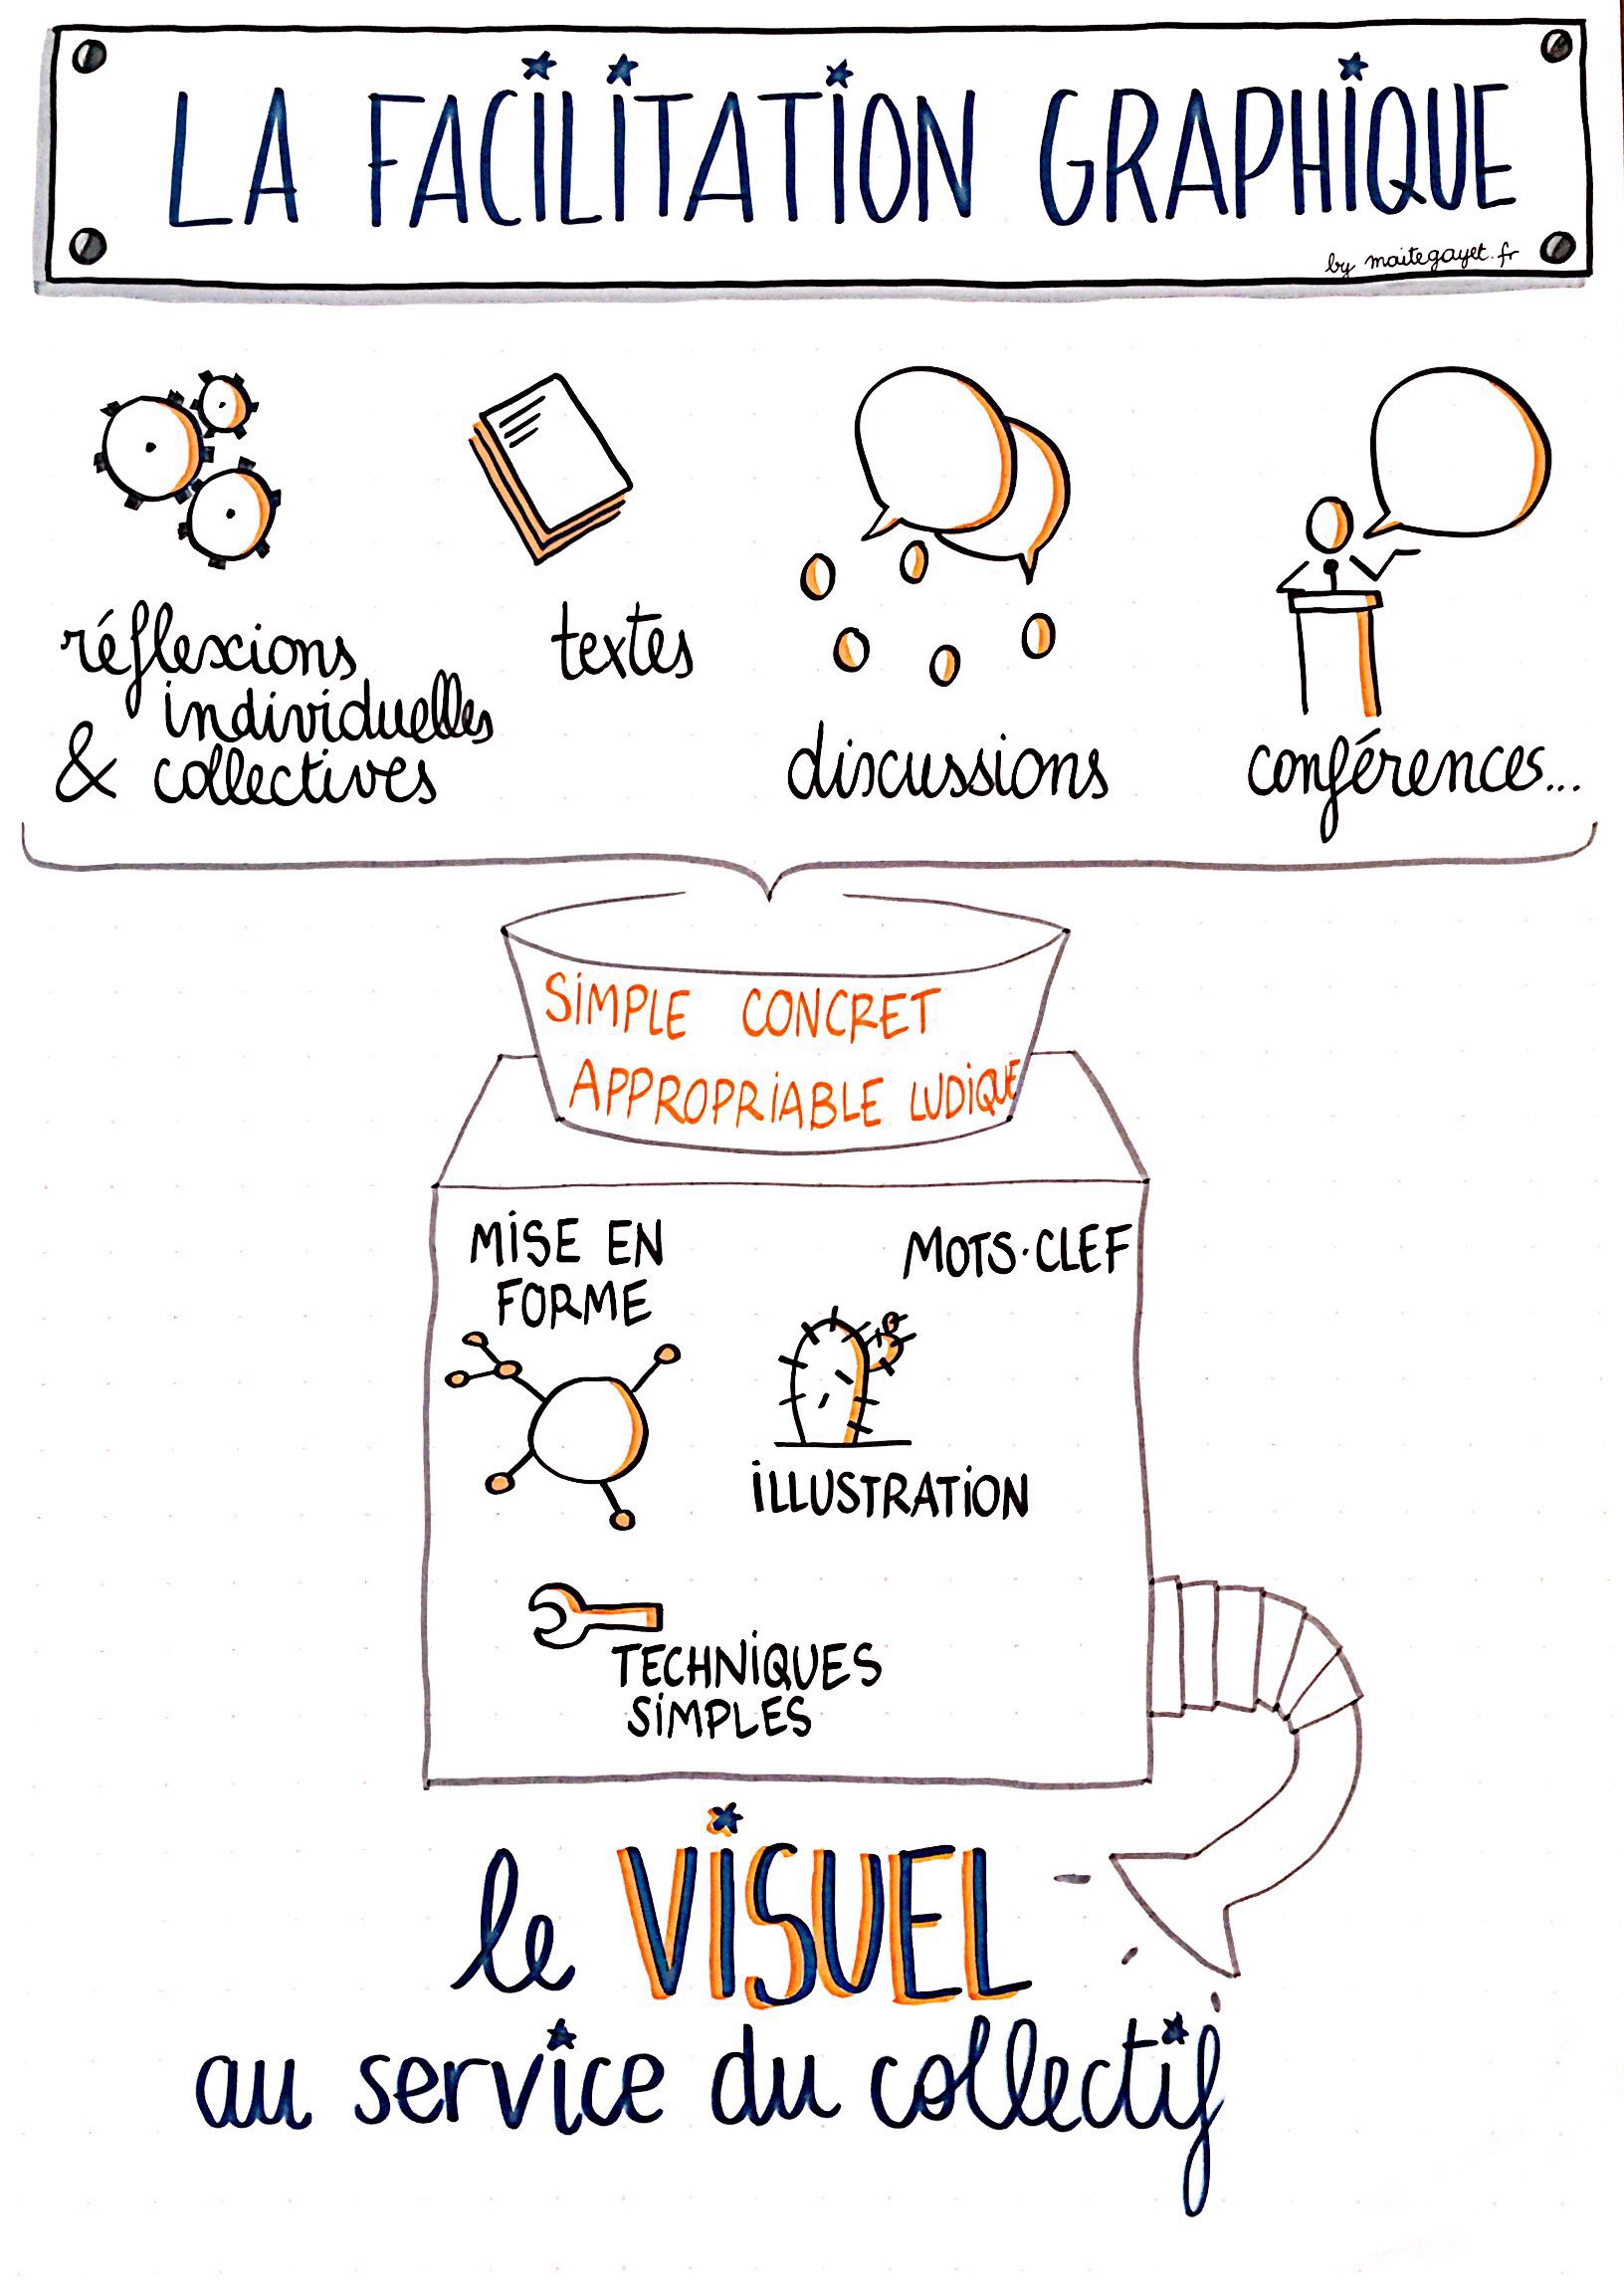 LA FACILITATION GRAPHIQUE
by maitegayet.fr
réflexions
individuelles
& collectives
textes
discussions
conférences...
SIMPLE CONCRET
APPROPRIABLE LUDIQUE
MISE EN
FORME
MOTS-CLEF
ILLUSTRATION
TECHNIQUES
SIMPLES
le VISUEL
au service du collectif